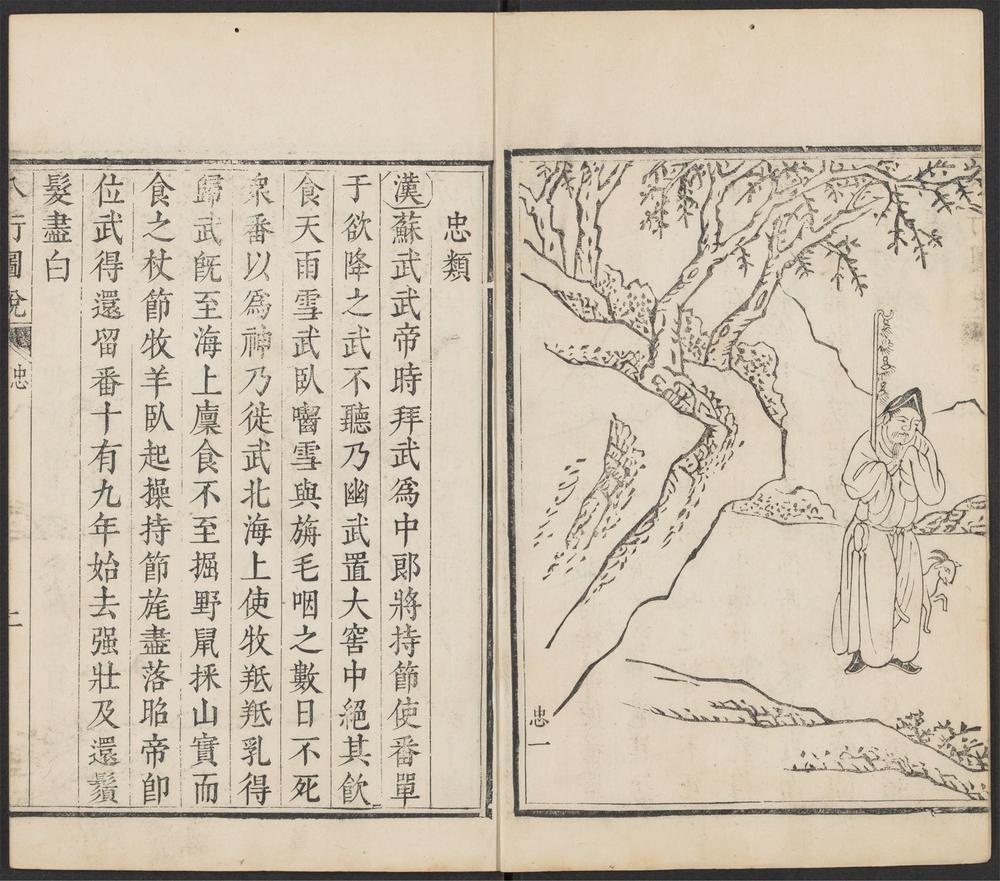 忠一
忠類
漢蘇武武帝時拜武爲中郎將持節使番單
于欲降之武不聽乃幽武置大窖中絕其飲
食天雨雪武臥嚙雪與旃毛咽之數日不死
衆番以爲神乃徙武北海上使牧羝羝乳得
歸武旣至海上廩食不至掘野鼠採山實而
食之杖節牧羊臥起操持節旄盡落昭帝卽
位武得還留番十有九年始去强壯及還鬚
髮盡白
八行圖說 忠 二